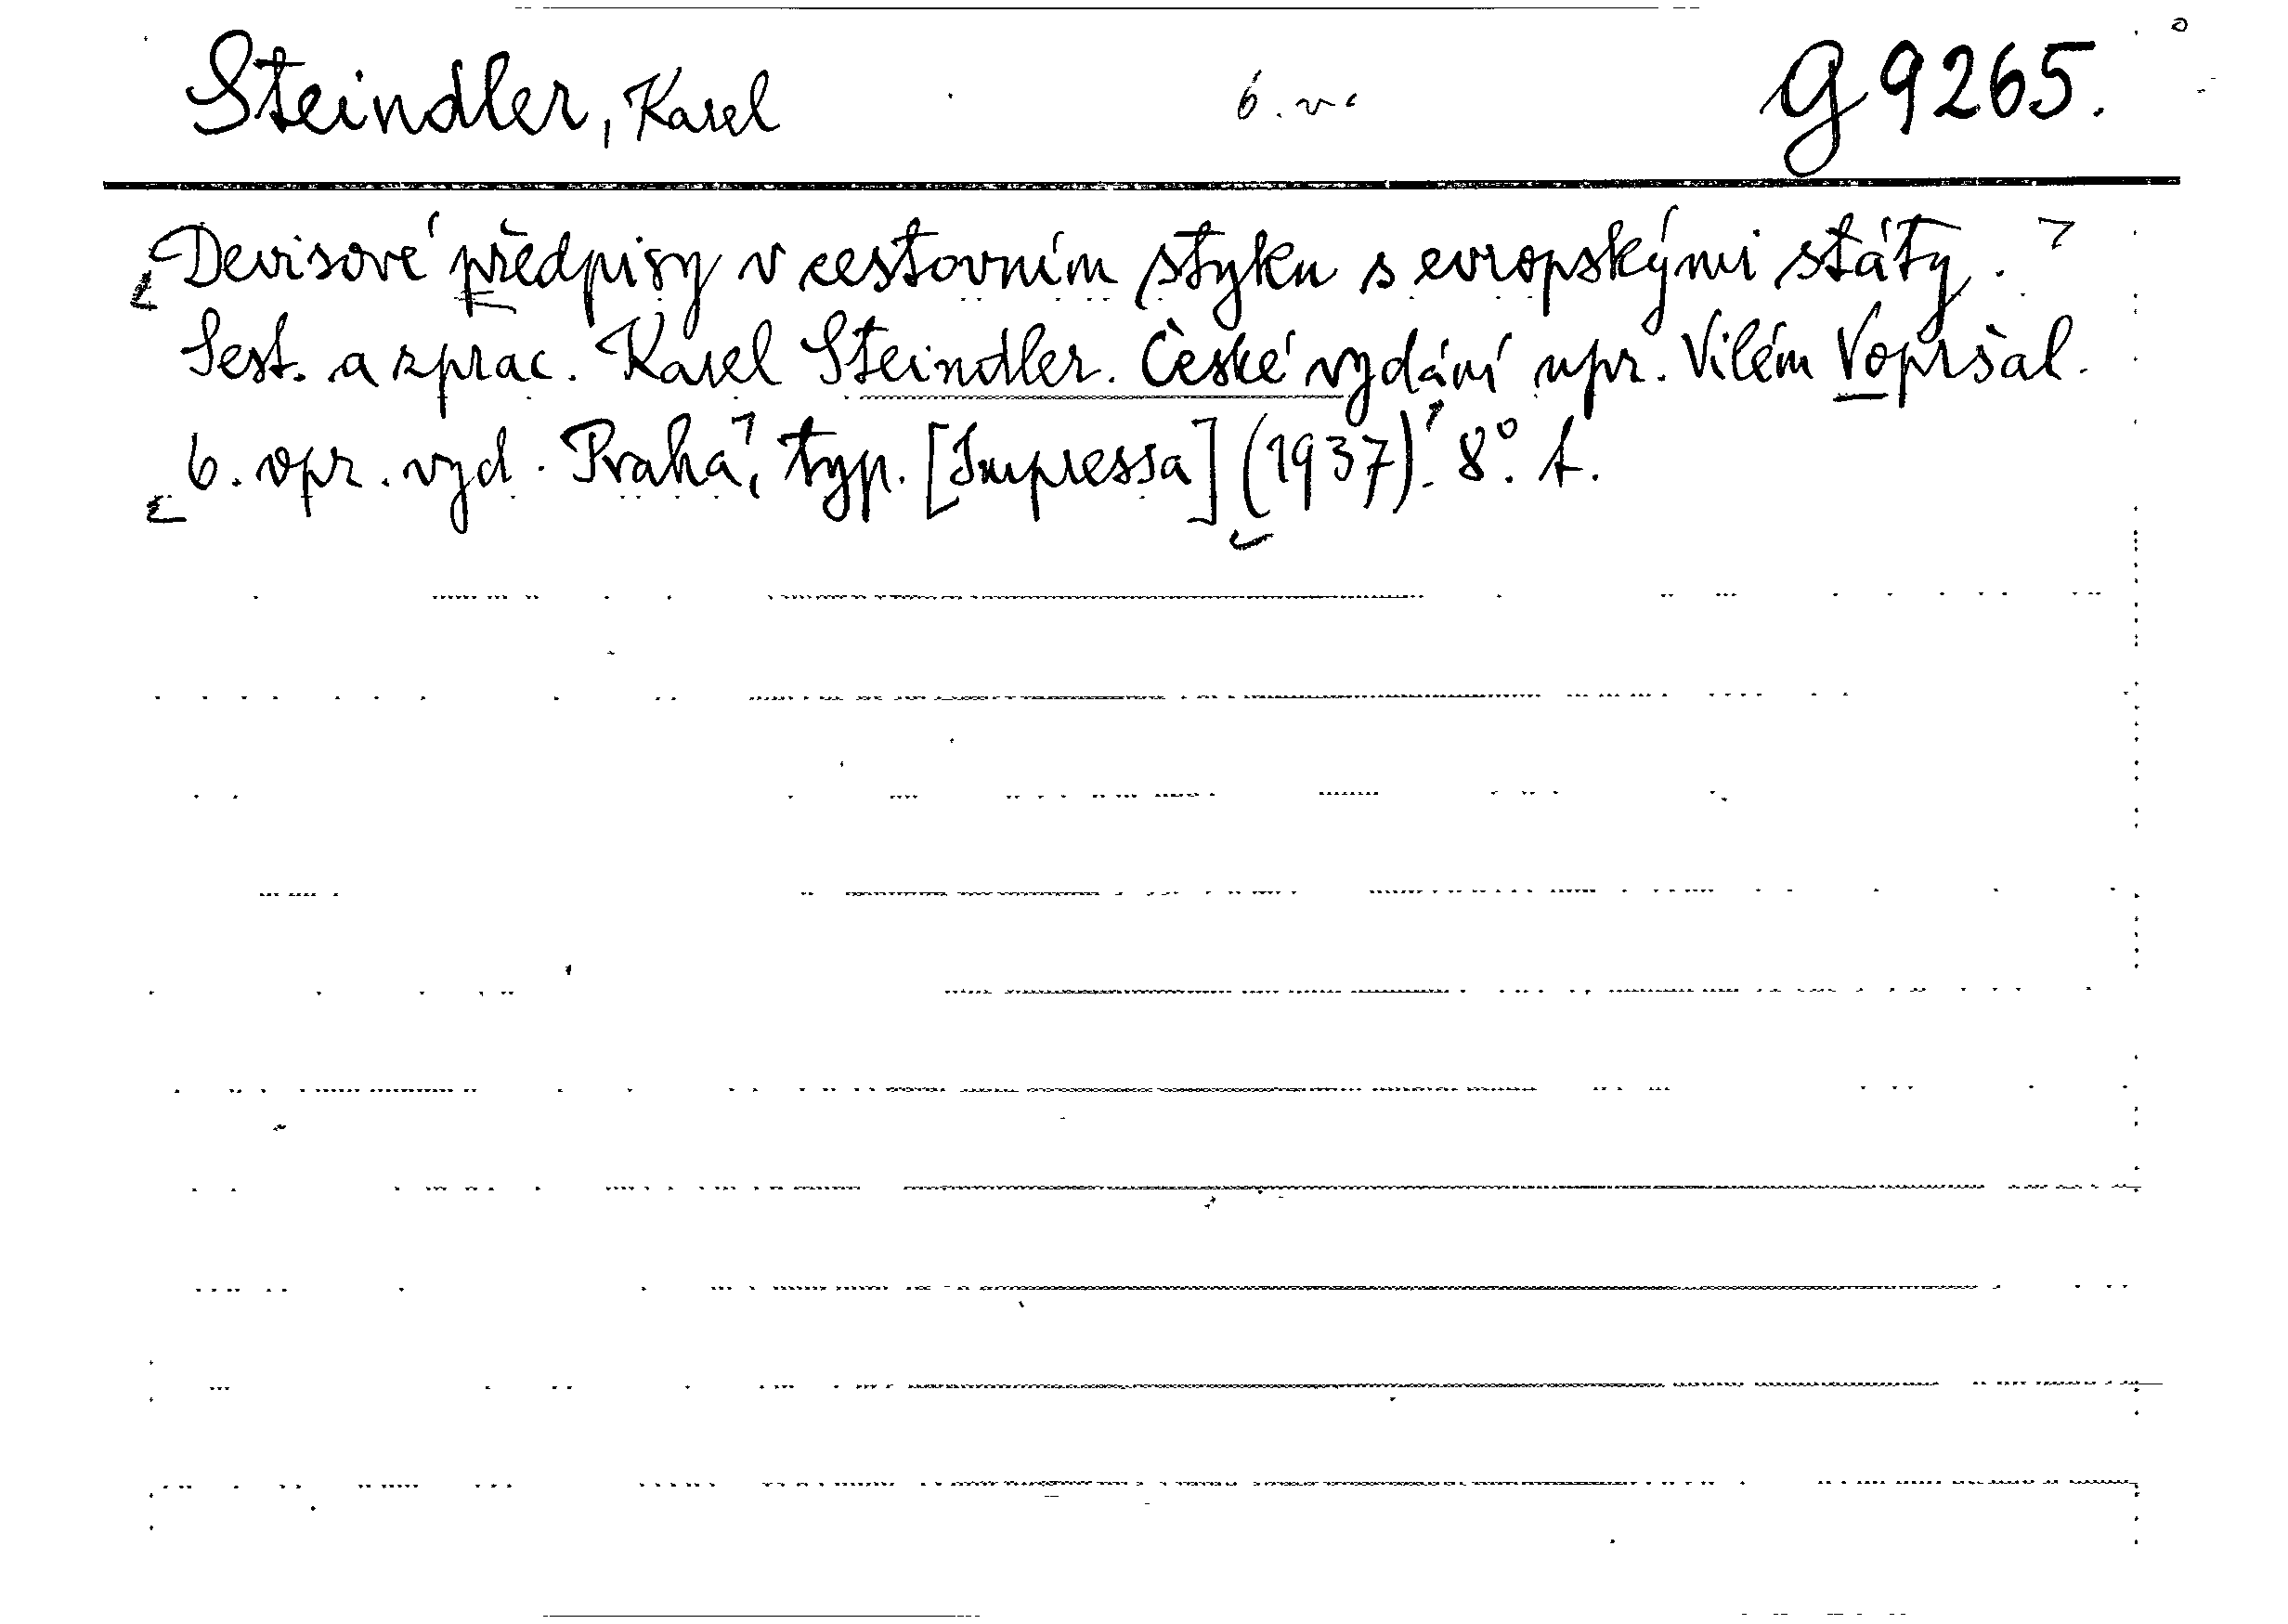 Steindler, Karel 6. v. G 9265.
Devisové předpisy v cestovním styku s evropskými státy.
Sest. a zprac. Karel Steindler. České vydání upr. Vilém Vopršal.
6. opr. vyd. Praha, typ. [Impressa] (1937). 8°. A.